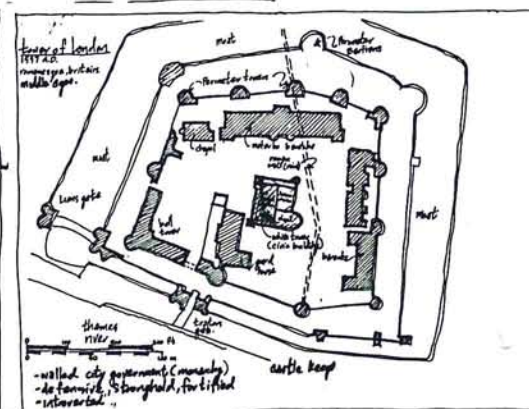 tower of london
1597 A.D.
romanesque, britain
middle ages.
moat
Perimeter
bastions
Perimeter towers
moat
chapel
waterloo barracks
roman
wall (ruin)
Lions gate
bell
tower
white tower
(civic building)
guard
house
barracks
moat
thames
river
castle keep
-walled city government (monarchy)
-defensive, stronghold, fortified
-introverted